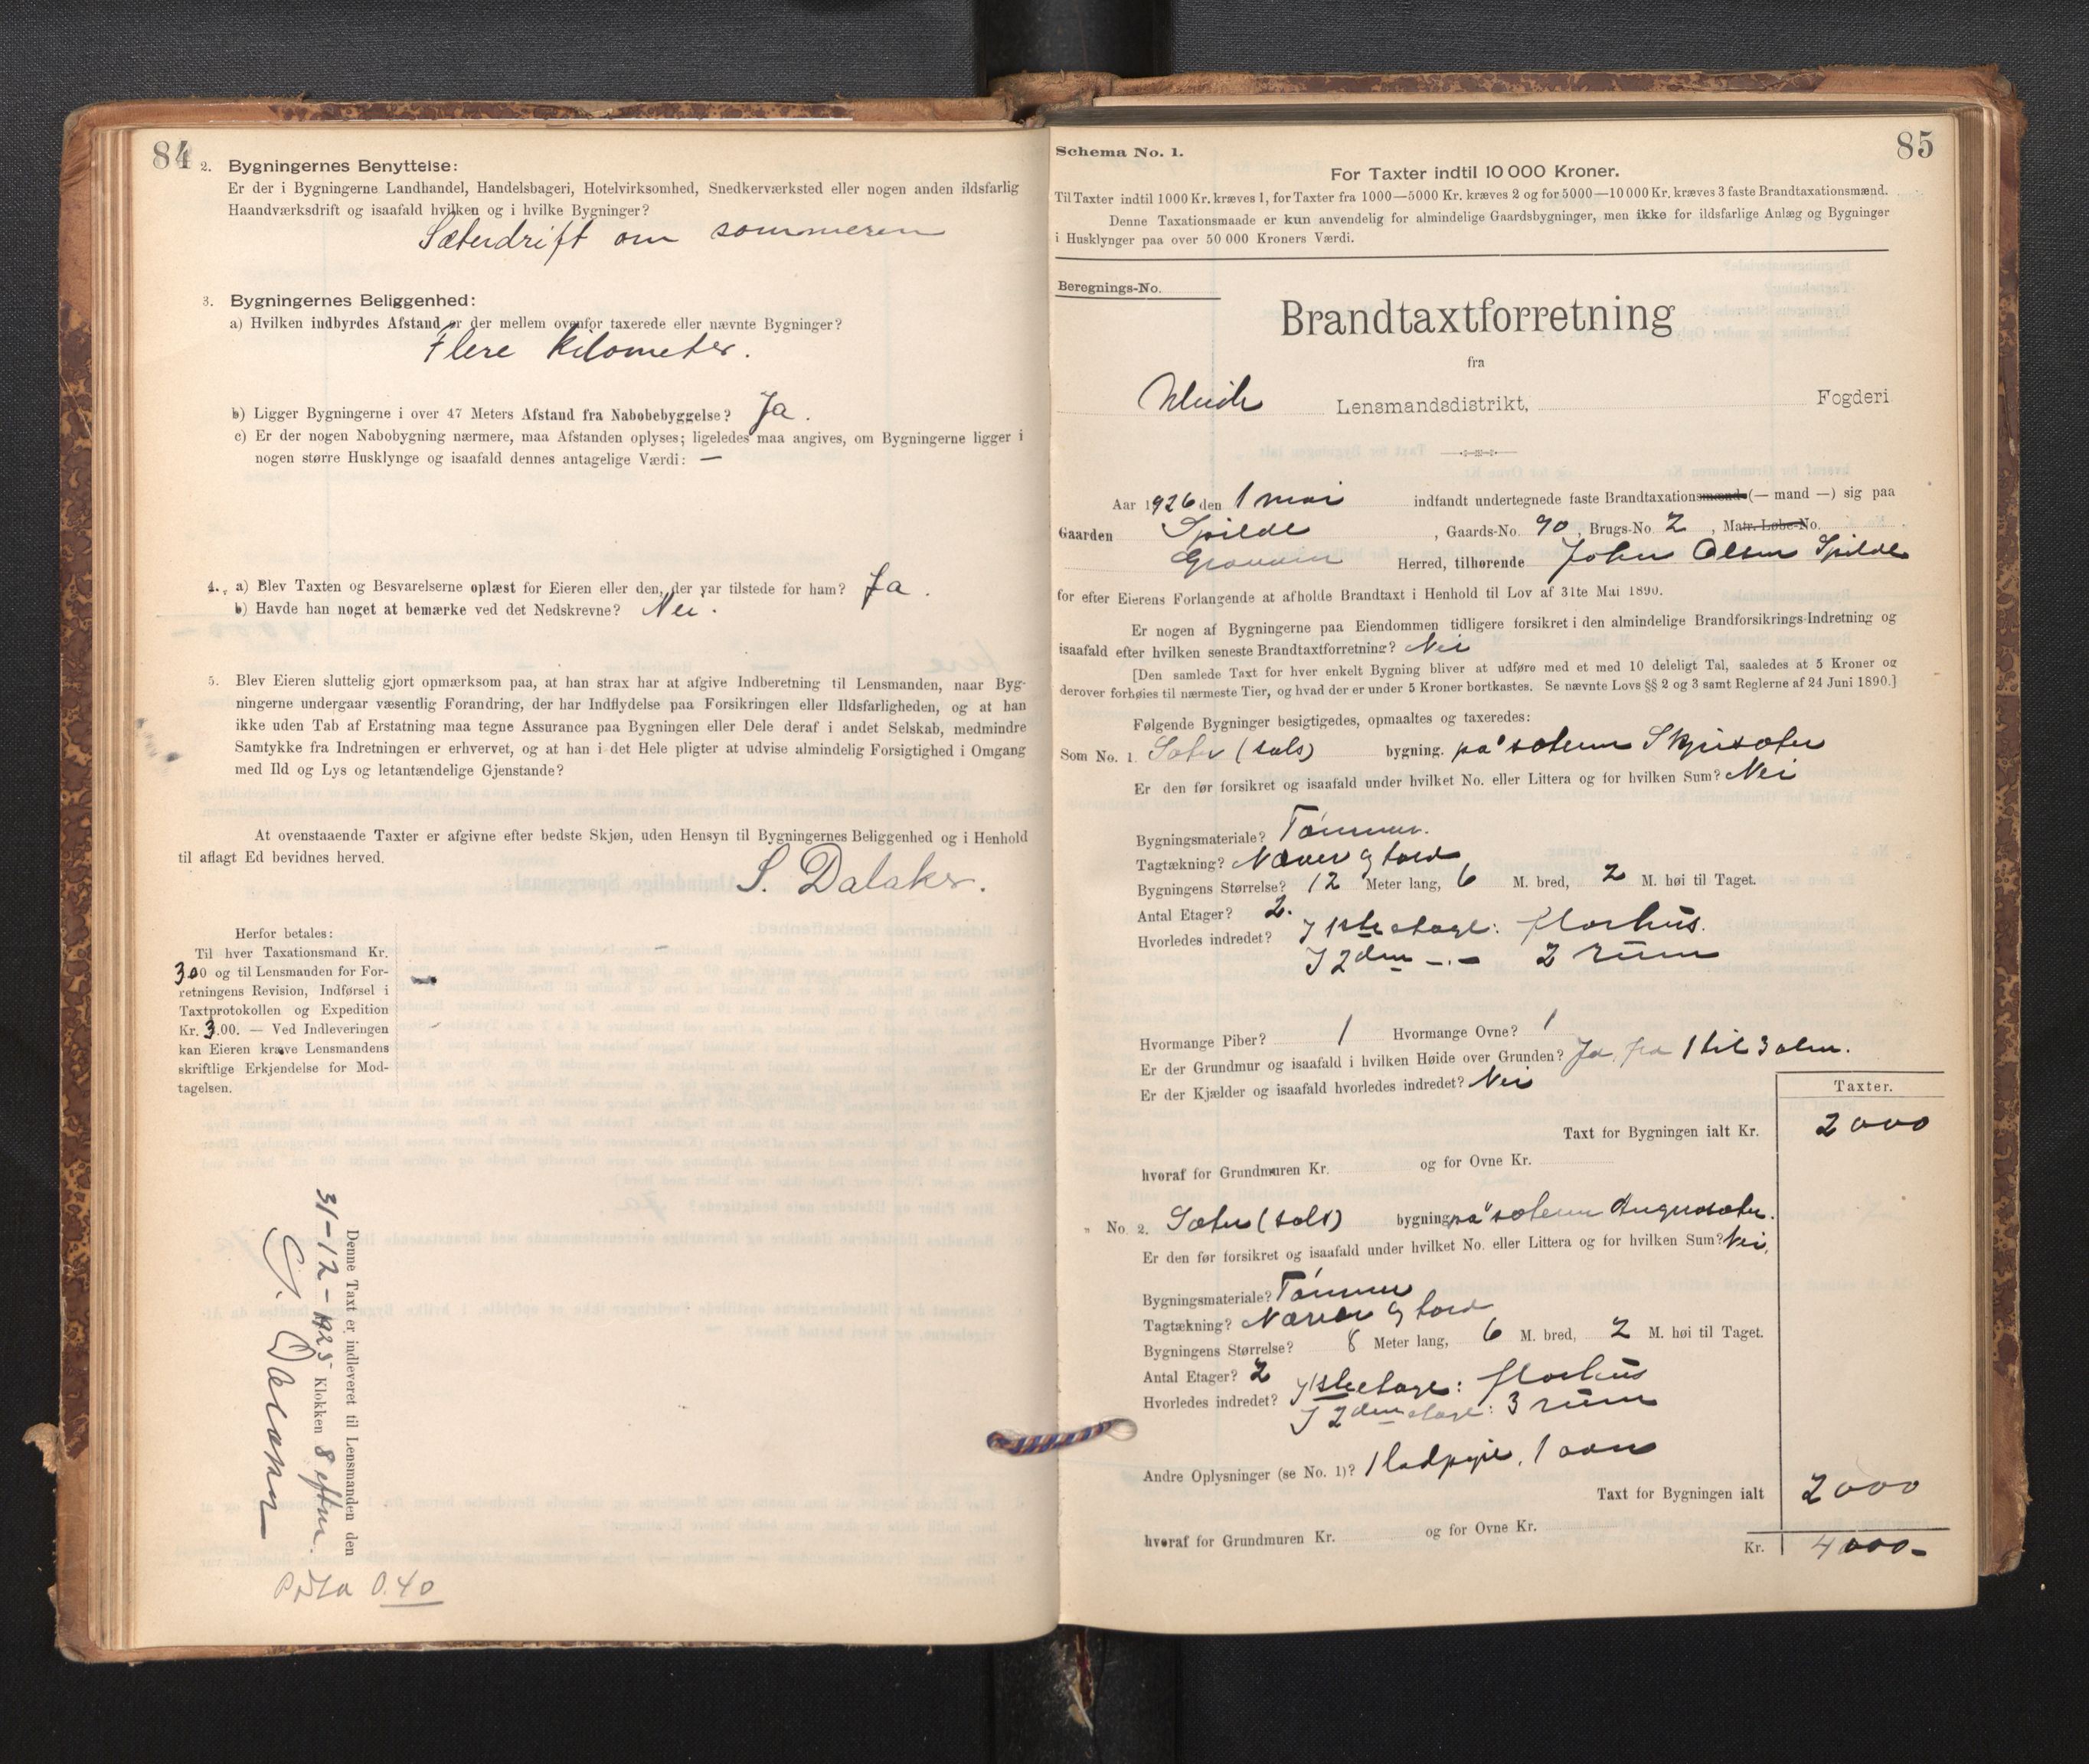 84
2. Bygningernes Benyttelse:
Er der i Bygningerne Landhandel, Handelsbageri, Hotelvirksomhed, Snedkerværksted eller nogen anden ildsfarlig
Haandværksdrift og isaafald hvilken og i hvilke Bygninger?
Sæterdrift om sommeren
3. Bygningernes Beliggenhed:
a) Hvilken indbyrdes Afstand er der mellem ovenfor taxerede eller nævnte Bygninger?
Flere kilometer.
b) Ligger Bygningerne i over 47 Meters Afstand fra Nabobebyggelse? Ja.
c) Er der nogen Nabobygning nærmere, maa Afstanden oplyses; ligeledes maa angives, om Bygningerne ligger i
nogen større Husklynge og isaafald dennes antagelige Værdi: —
4. a) Blev Taxten og Besvarelserne oplæst for Eieren eller den, der var tilstede for ham? Ja.
b) Havde han noget at bemærke ved det Nedskrevne? Nei.
5. Blev Eieren sluttelig gjort opmærksom paa, at han strax har at afgive Indberetning til Lensmanden, naar Byg-
ningerne undergaar væsentlig Forandring, der har Indflydelse paa Forsikringen eller Ildsfarligheden, og at han
ikke uden Tab af Erstatning maa tegne Assurance paa Bygningen eller Dele deraf i andet Selskab, medmindre
Samtykke fra Indretningen er erhvervet, og at han i det Hele pligter at udvise almindelig Forsigtighed i Omgang
med Ild og Lys og letantændelige Gjenstande?
At ovenstaaende Taxter er afgivne efter bedste Skjøn, uden Hensyn til Bygningernes Beliggenhed og i Henhold
til aflagt Ed bevidnes herved.
S. Dalaker.
Herfor betales:
Til hver Taxationsmand Kr.
3.00 og til Lensmanden for For-
retningens Revision, Indførsel i
Taxtprotokollen og Expedition
Kr. 3.00. — Ved Indleveringen
kan Eieren kræve Lensmandens
skriftlige Erkjendelse for Mod-
tagelsen.
Denne Taxt er indleveret til Lensmanden den
31-12-1925 Klokken 8 efterm.
S. Dalaker
Porto 0.40
85
Schema No. 1.
For Taxter indtil 10 000 Kroner.
Til Taxter indtil 1000 Kr. kræves 1, for Taxter fra 1000—5000 Kr. kræves 2 og for 5000—10 000 Kr. kræves 3 faste Brandtaxationsmænd.
Denne Taxationsmaade er kun anvendelig for almindelige Gaardsbygninger, men ikke for ildsfarlige Anlæg og Bygninger
i Husklynger paa over 50 000 Kroners Værdi.
Beregnings-No.
Brandtaxtforretning
fra
Lensmandsdistrikt, Fogderi
Aar 1926 den 1 mai indfandt undertegnede faste Brandtaxationsmænd (— mand —) sig paa
Gaarden Spilde, Gaards-No. 90, Brugs-No. 2, Matr. Løbe-No.
Graven Herred, tilhørende John Olsen Spilde
for efter Eierens Forlangende at afholde Brandtaxt i Henhold til Lov af 31te Mai 1890.
Er nogen af Bygningerne paa Eiendommen tidligere forsikret i den almindelige Brandforsikrings-Indretning og
isaafald efter hvilken seneste Brandtaxtforretning? Nei
[Den samlede Taxt for hver enkelt Bygning bliver at udføre med et med 10 deleligt Tal, saaledes at 5 Kroner og
derover forhøies til nærmeste Tier, og hvad der er under 5 Kroner bortkastes. Se nævnte Lovs §§ 2 og 3 samt Reglerne af 24 Juni 1890.]
Følgende Bygninger besigtigedes, opmaaltes og taxeredes:
Som No. 1. Sæter (sæls) bygning. på sæteren Skjersæter
Er den før forsikret og isaafald under hvilket No. eller Littera og for hvilken Sum? Nei
Bygningsmateriale? Tømmer.
Tagtækning? Næver og tord
Bygningens Størrelse? 12 Meter lang, 6 M. bred, 2 M. høi til Taget.
Antal Etager? 2.
Hvorledes indredet? I 1ste etage: Storhus.
I 2den —.— 2 rum
Hvormange Piber? 1 Hvormange Ovne? 1
Er der Grundmur og isaafald i hvilken Høide over Grunden? Ja, fra 1 til 3 alen.
Er der Kjælder og isaafald hvorledes indredet? Nei
Taxter.
Taxt for Bygningen ialt Kr. 2000
hvoraf for Grundmuren Kr. og for Ovne Kr.
" No. 2. Sæter (sæls) bygning på sæteren
Er den før forsikret og isaafald under hvilket No. eller Littera og for hvilken Sum? Nei.
Bygningsmateriale? Tømmer
Tagtækning? Næver og tord
Bygningens Størrelse? 8 Meter lang, 6 M. bred, 2 M. høi til Taget.
Antal Etager? 2
Hvorledes indredet? I 1ste etage: Storhus
I 2den etage: 3 rum
Andre Oplysninger (se No. 1)? 1 ladpipe, 1 ovn
Taxt for Bygningen ialt 2000
hvoraf for Grundmuren Kr. og for Ovne Kr.
Kr. 4000-